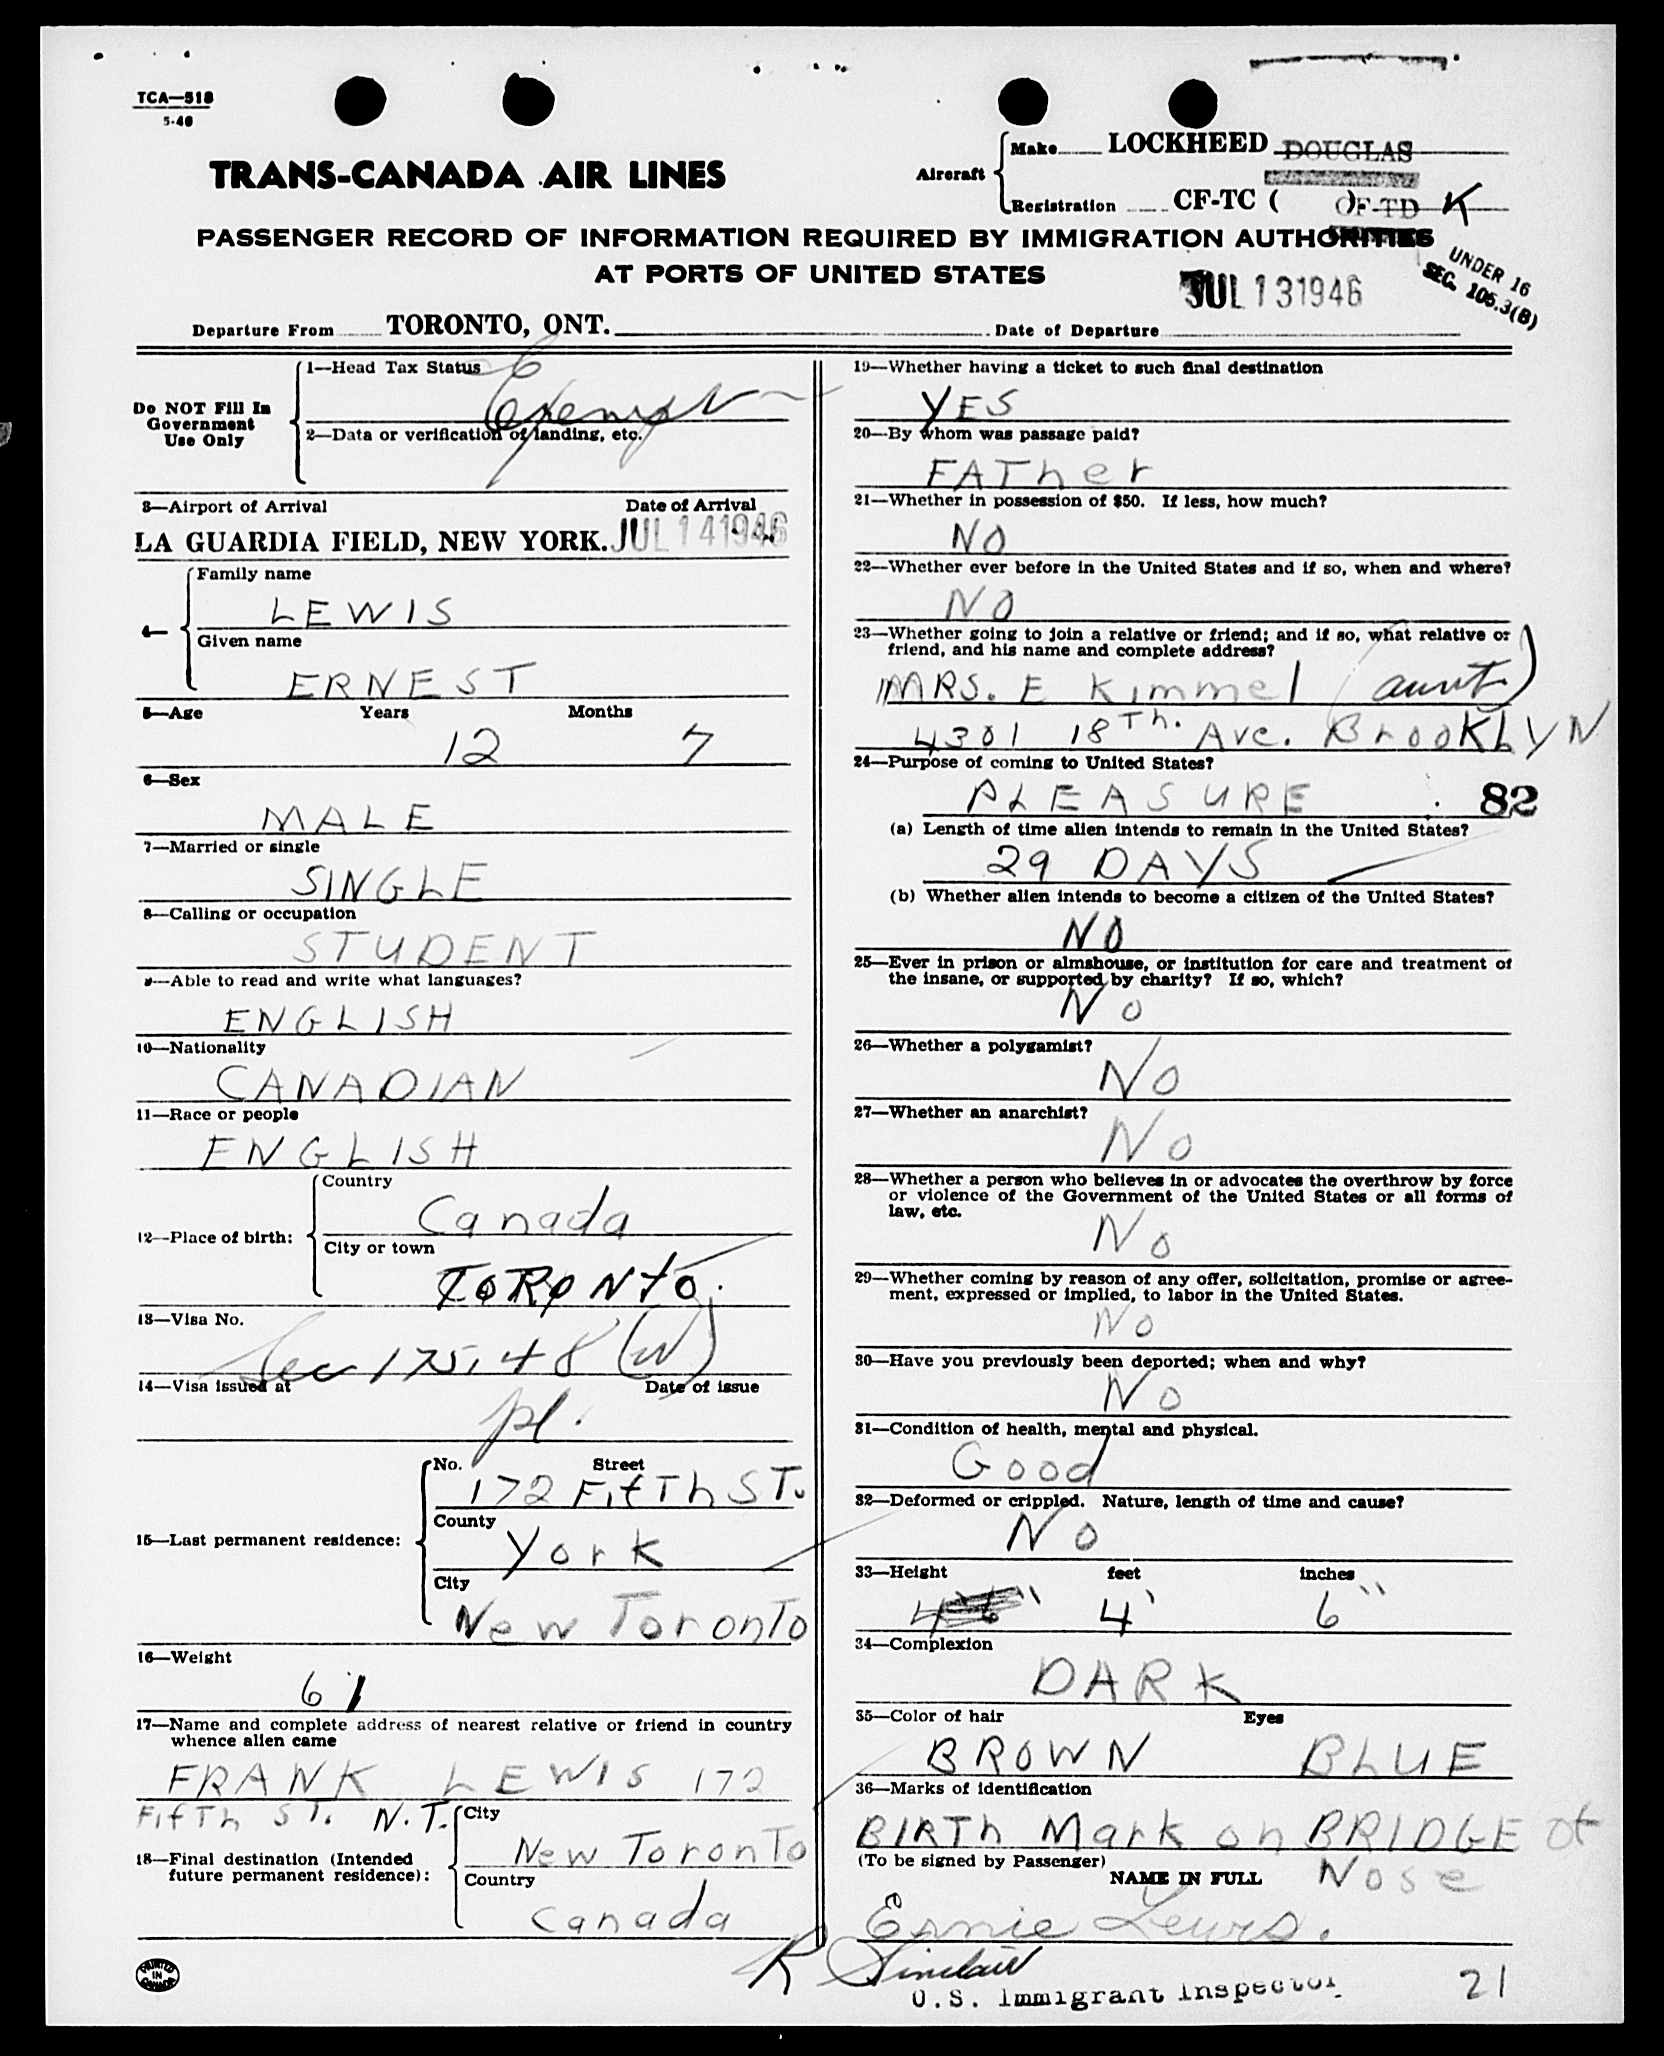 TCA—518
5-40
TRANS-CANADA AIR LINES
Aircraft
Make LOCKHEED DOUGLAS
Registration CF-TC ( ) CF-TD K
PASSENGER RECORD OF INFORMATION REQUIRED BY IMMIGRATION AUTHORITIES
AT PORTS OF UNITED STATES
UNDER 16
SEC. 105.3(B)
JUL 13 1946
Departure From TORONTO, ONT. Date of Departure
Do NOT Fill In
Government
Use Only
1—Head Tax Status
Exempt
2—Data or verification of landing, etc.
3—Airport of Arrival Date of Arrival
LA GUARDIA FIELD, NEW YORK. JUL 14 1946
4—
Family name
LEWIS
Given name
ERNEST
5—Age Years Months
12 7
6—Sex
MALE
7—Married or single
SINGLE
8—Calling or occupation
STUDENT
9—Able to read and write what languages?
ENGLISH
10—Nationality
CANADIAN
11—Race or people
ENGLISH
12—Place of birth:
Country
Canada
City or town
TORONTO.
13—Visa No.
Sec 175.48 (W)
14—Visa issued at Date of issue
pl.
15—Last permanent residence:
No. Street
172 FifTh ST.
County
York
City
New Toronto
16—Weight
61
17—Name and complete address of nearest relative or friend in country
whence alien came
FRANK LEWIS 172
FifTh ST. N.T.
18—Final destination (Intended
future permanent residence):
City
New Toronto
Country
Canada
PRINTED
IN
CANADA
19—Whether having a ticket to such final destination
YES
20—By whom was passage paid?
FATher
21—Whether in possession of $50. If less, how much?
NO
22—Whether ever before in the United States and if so, when and where?
NO
23—Whether going to join a relative or friend; and if so, what relative or
friend, and his name and complete address?
MRS. E Kimmel (aunt)
4301 18Th. Ave. BrooKLYN
24—Purpose of coming to United States?
PLEASURE 82
(a) Length of time alien intends to remain in the United States?
29 DAYS
(b) Whether alien intends to become a citizen of the United States?
NO
25—Ever in prison or almshouse, or institution for care and treatment of
the insane, or supported by charity? If so, which?
No
26—Whether a polygamist?
No
27—Whether an anarchist?
No
28—Whether a person who believes in or advocates the overthrow by force
or violence of the Government of the United States or all forms of
law, etc.
No
29—Whether coming by reason of any offer, solicitation, promise or agree-
ment, expressed or implied, to labor in the United States.
No
30—Have you previously been deported; when and why?
No
31—Condition of health, mental and physical.
Good
32—Deformed or crippled. Nature, length of time and cause?
No
33—Height feet inches
4' 6"
34—Complexion
DARK
35—Color of hair Eyes
BROWN BLUE
36—Marks of identification
BIRTh Mark on BRIDGE of
Nose
(To be signed by Passenger)
NAME IN FULL
Ernie Lewis.
R Sinclair
U.S. Immigrant Inspector
21